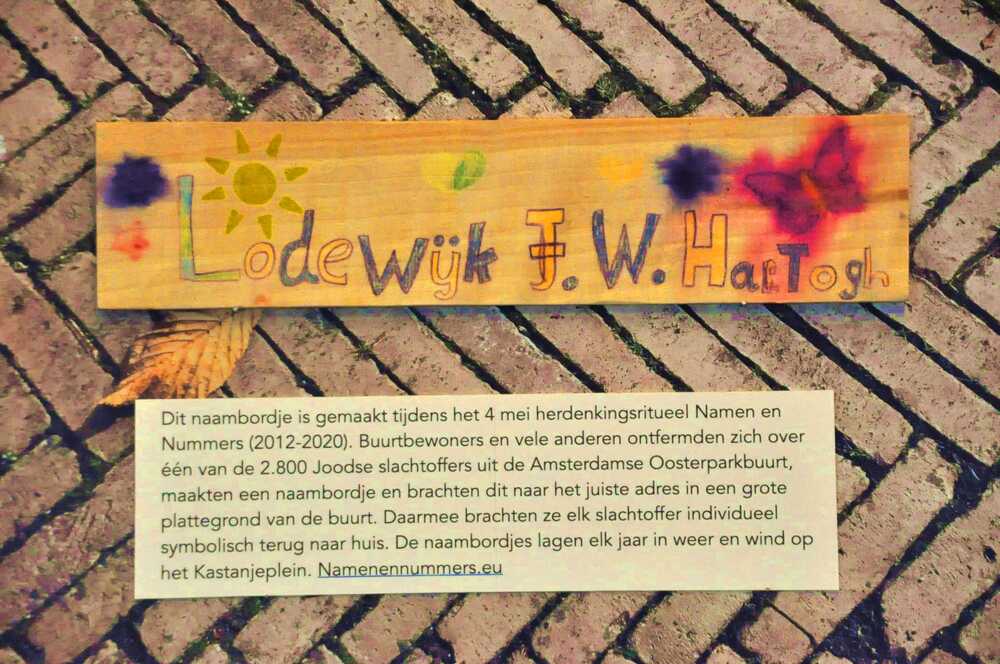 Lodewijk J. W. Hartogh
Dit naambordje is gemaakt tijdens het 4 mei herdenkingsritueel Namen en
Nummers (2012-2020). Buurtbewoners en vele anderen ontfermden zich over
één van de 2.800 Joodse slachtoffers uit de Amsterdamse Oosterparkbuurt,
maakten een naambordje en brachten dit naar het juiste adres in een grote
plattegrond van de buurt. Daarmee brachten ze elk slachtoffer individueel
symbolisch terug naar huis. De naambordjes lagen elk jaar in weer en wind op
het Kastanjeplein. Namenennummers.eu